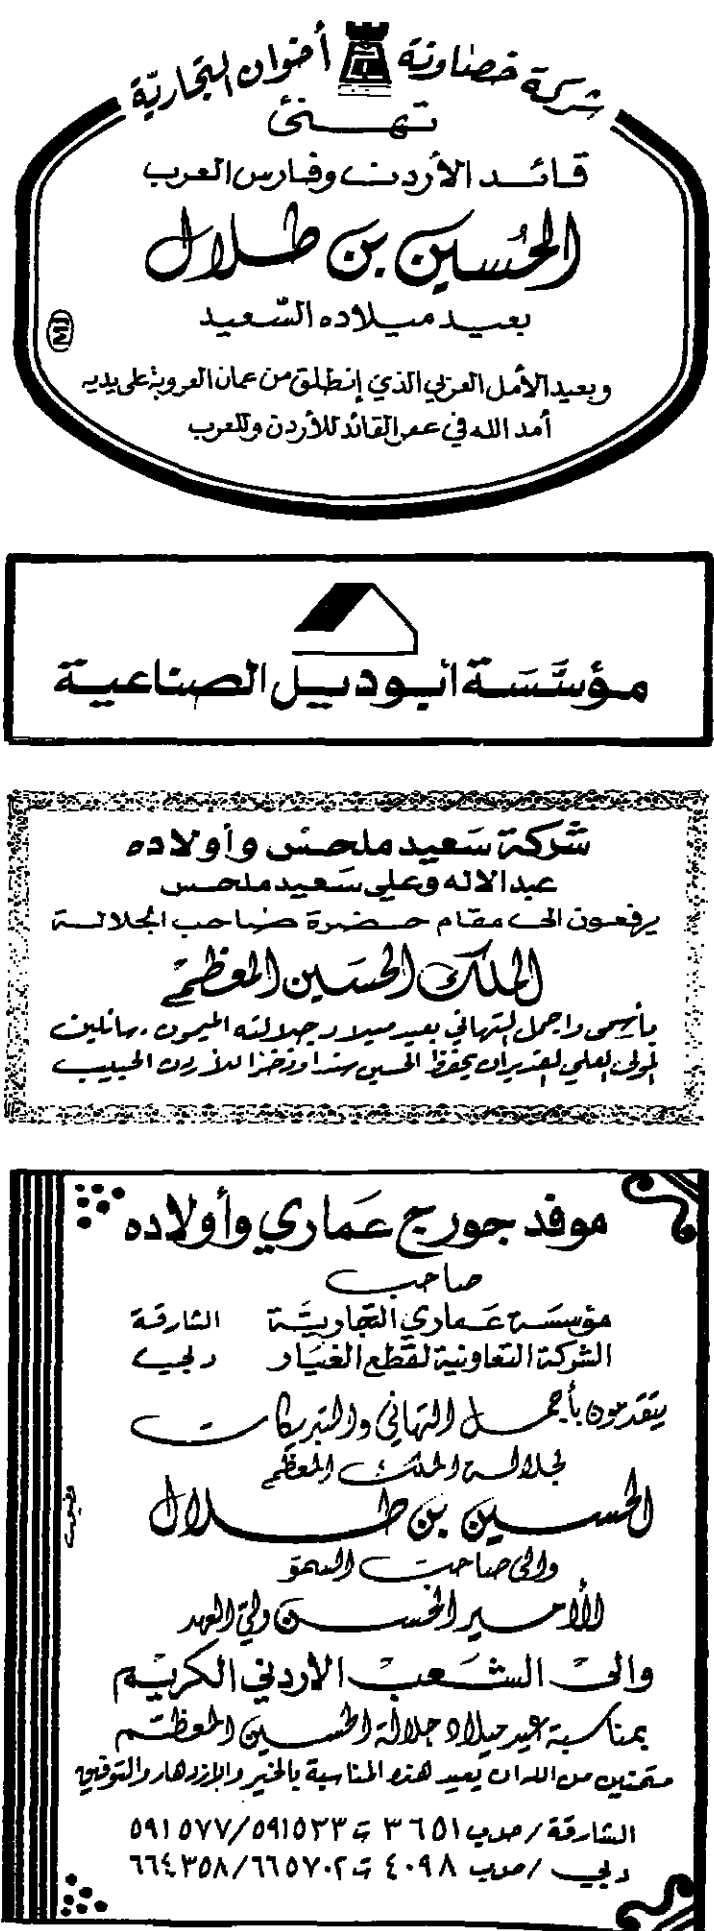 شركة خصاونة أخوان التجارية
تهنئ
قائد الأردن وفارس العرب
الحُسين بن طلال
بعيد ميلاده السّعيد
وبعيد الأمل العربي الذي إنطلق من عمان العروبة على يديه
أمد الله في عمر القائد للأردن وللعرب
MJ
مؤسَّسَة أبو ديل الصناعية
شركة سَعيد ملحس وأولاده
عبدالاله وعلي سَعيد ملحس
يرفعون الى مقام حضرة صاحب الجلالة
الملك الحسَين المعظم
بأسمى واجمل التهاني بعيد ميلاد جلالته الميمون، سائلين
المولى العلي القدير ان يحفظ الحسين سندا وذخرا للأردن الحبيب
موفد جورج عَماري وأولاده
صاحب
مؤسسَة عَماري التجاريَّة الشارقة
الشركة التعاونية لقطع الغيَار دلجي
يتقدمون بأجمل التهاني والتبريكات
لجلالة الملك المعظم
الحسين بن طلال
والى صاحب السمو
الأمير الحسن ولي العهد
والى الشَعب الأردني الكريم
بمناسبة عيد ميلاد جلالة الحسين المعظم
متمنين من الله ان يعيد هذه المناسبة بالخير والإزدهار والتوفيق
الشارقة / ص.ب ٣٦٥١ ت ٥٩١٥٣٣/٥٩١٥٧٧
دبي / ص.ب ٤٠٩٨ ت ٦٦٥٧٠٢/٦٦٤٣٥٨